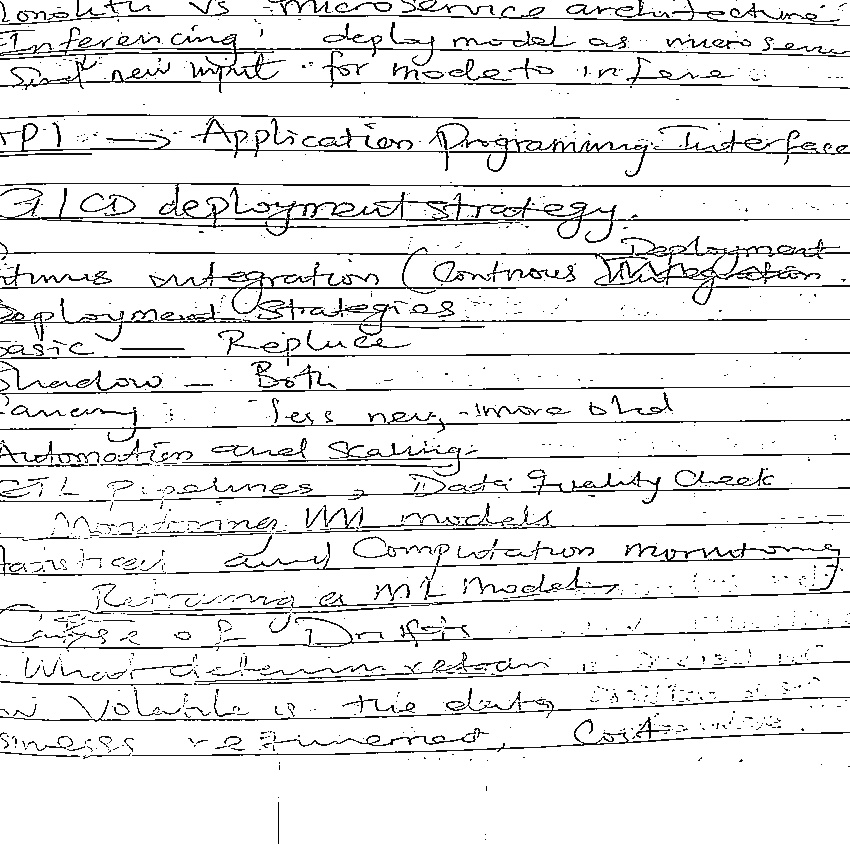 Monolith vs microservice architecture
Inferencing: deploy model as microserv
Send new input for mode to infere.
API → Application Programing Interface
CI/CD deployment strategy.
Deployment
ntinus integration (Contnous Integration.
Deployment Strategies
Basic — Replace
Shadow — Both
Canary: less new - more old
Automation and Scaling
ETL Pipelines, Data Quality Check
Monitoring ML models
and Computation monitoring
Retraing a ML Model
Cause of Drifts
What determin retran
w Volatile is the data
siness requirement, Cost